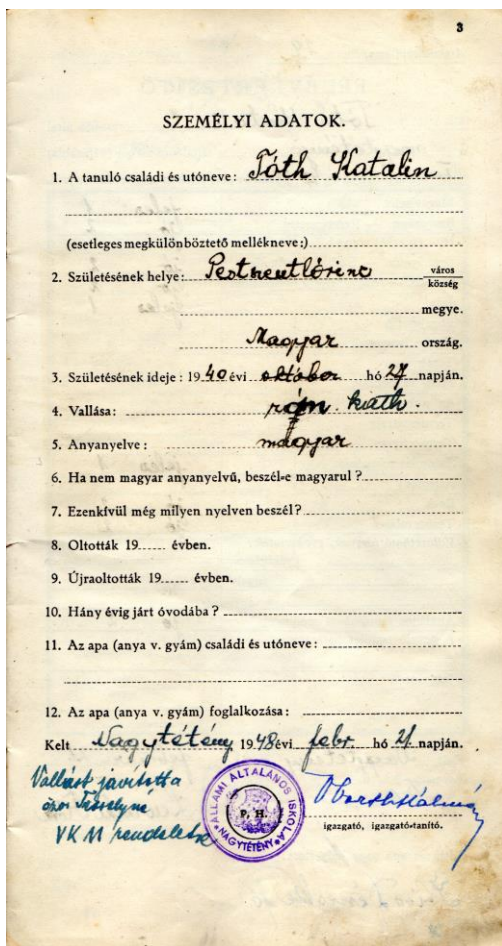 3
SZEMÉLYI ADATOK.
1. A tanuló családi és utóneve: Tóth Katalin
(esetleges megkülönböztető mellékneve:)
2. Születésének helye: Pestszentlőrinc város
község
megye.
Magyar ország.
3. Születésének ideje: 1940 évi október hó 27 napján.
4. Vallása: róm. kath.
5. Anyanyelve: magyar
6. Ha nem magyar anyanyelvű, beszél-e magyarul?
7. Ezenkívül még milyen nyelven beszél?
8. Oltották 19 évben.
9. Újraoltották 19 évben.
10. Hány évig járt óvodába?
11. Az apa (anya v. gyám) családi és utóneve:
12. Az apa (anya v. gyám) foglalkozása:
Kelt Nagytétény 1948 évi febr. hó 21 napján.
Vallást javította
VKM rendeletre
ÁLLAMI ÁLTALÁNOS ISKOLA
P. H.
NAGYTÉTÉNY
Kálmán
igazgató, igazgató-tanító.